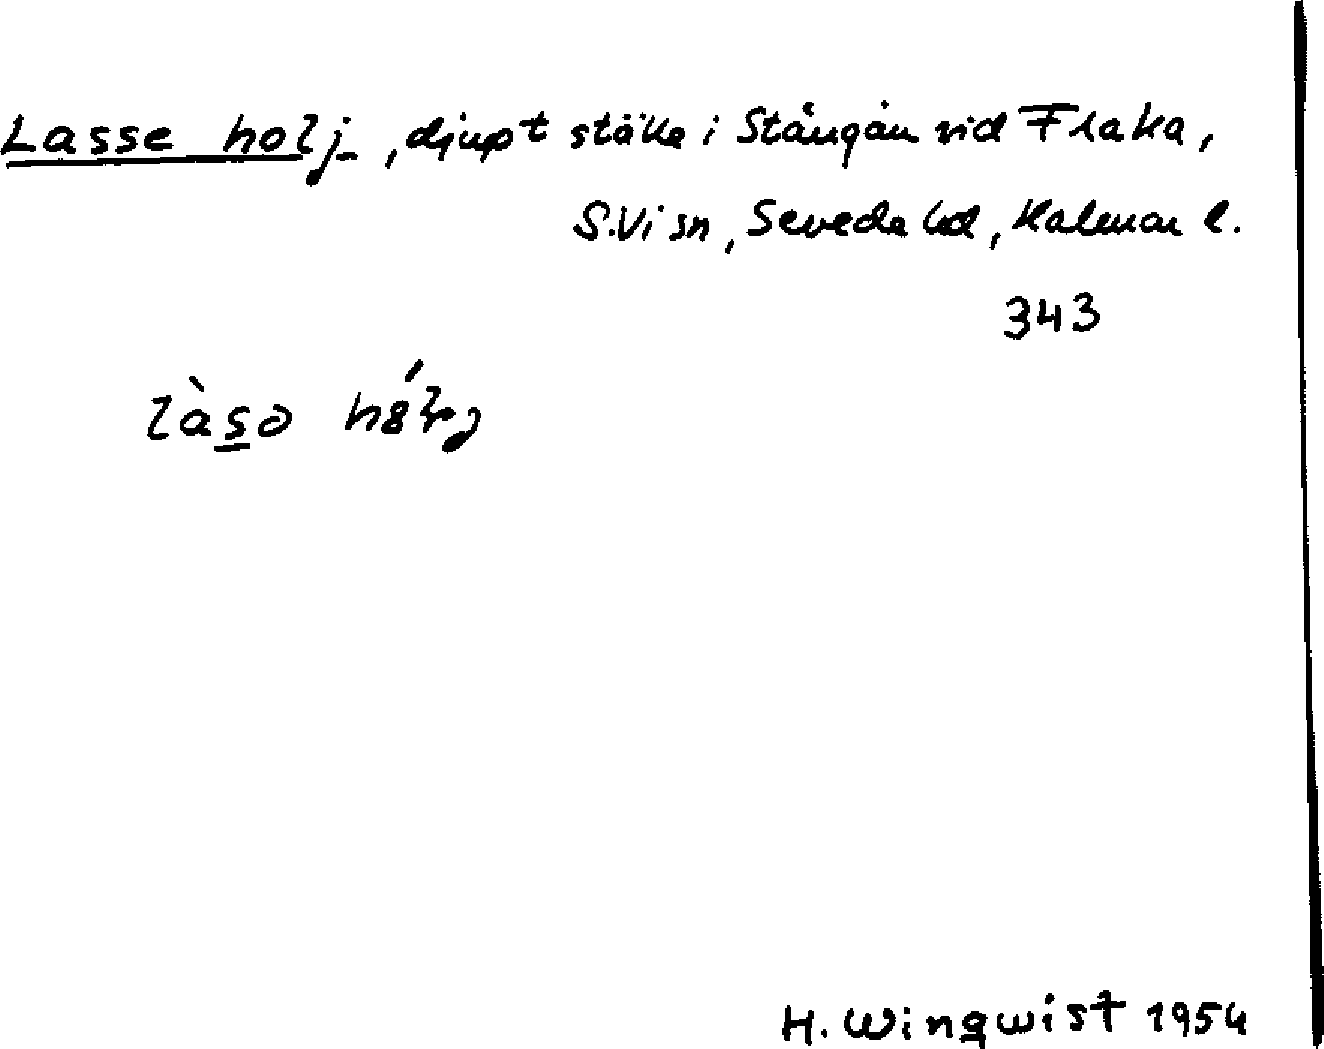 Lasse holj, djupt ställe i Stångån vid Flaka,
S.Vi sn, Sevede hd, Kalmar l.
343
H. Winqwist 1954